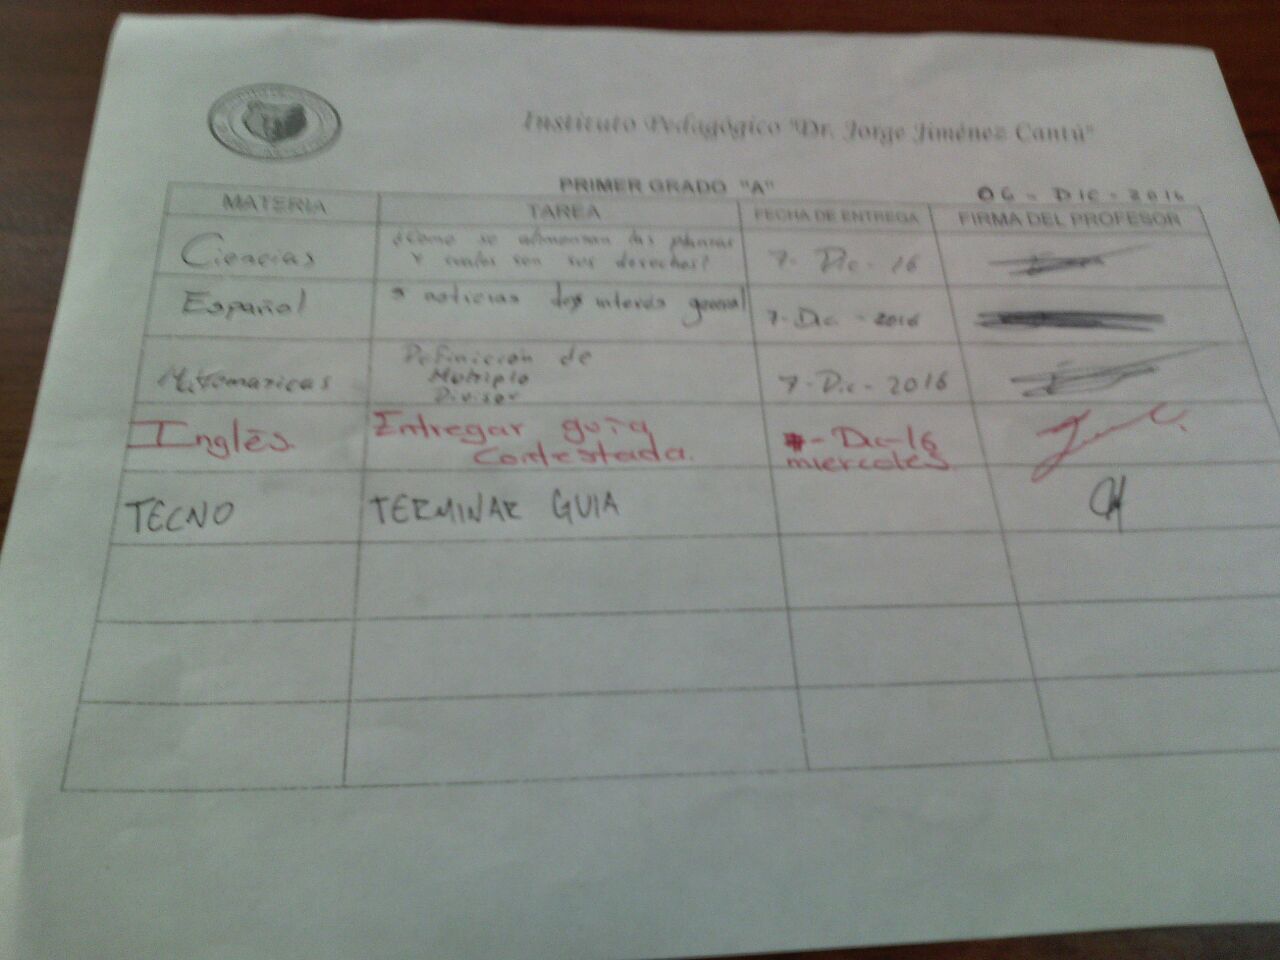 Instituto Pedagógico "Dr. Jorge Jiménez Cantú"
PRIMER GRADO "A"
06 - DIC - 2016
MATERIA TAREA FECHA DE ENTREGA FIRMA DEL PROFESOR
Ciencias ¿Como se alimentan las plantas
y cuales son sus desechos? 7 - Dic - 16
Español 3 noticias de interés general 7 - Dic - 2016
Matematicas Definición de
Multiplo
Divisor 7 - Dic - 2016
Inglés. Entregar guía
Contestada. 7 - Dic - 16
miercoles
TECNO TERMINAR GUIA